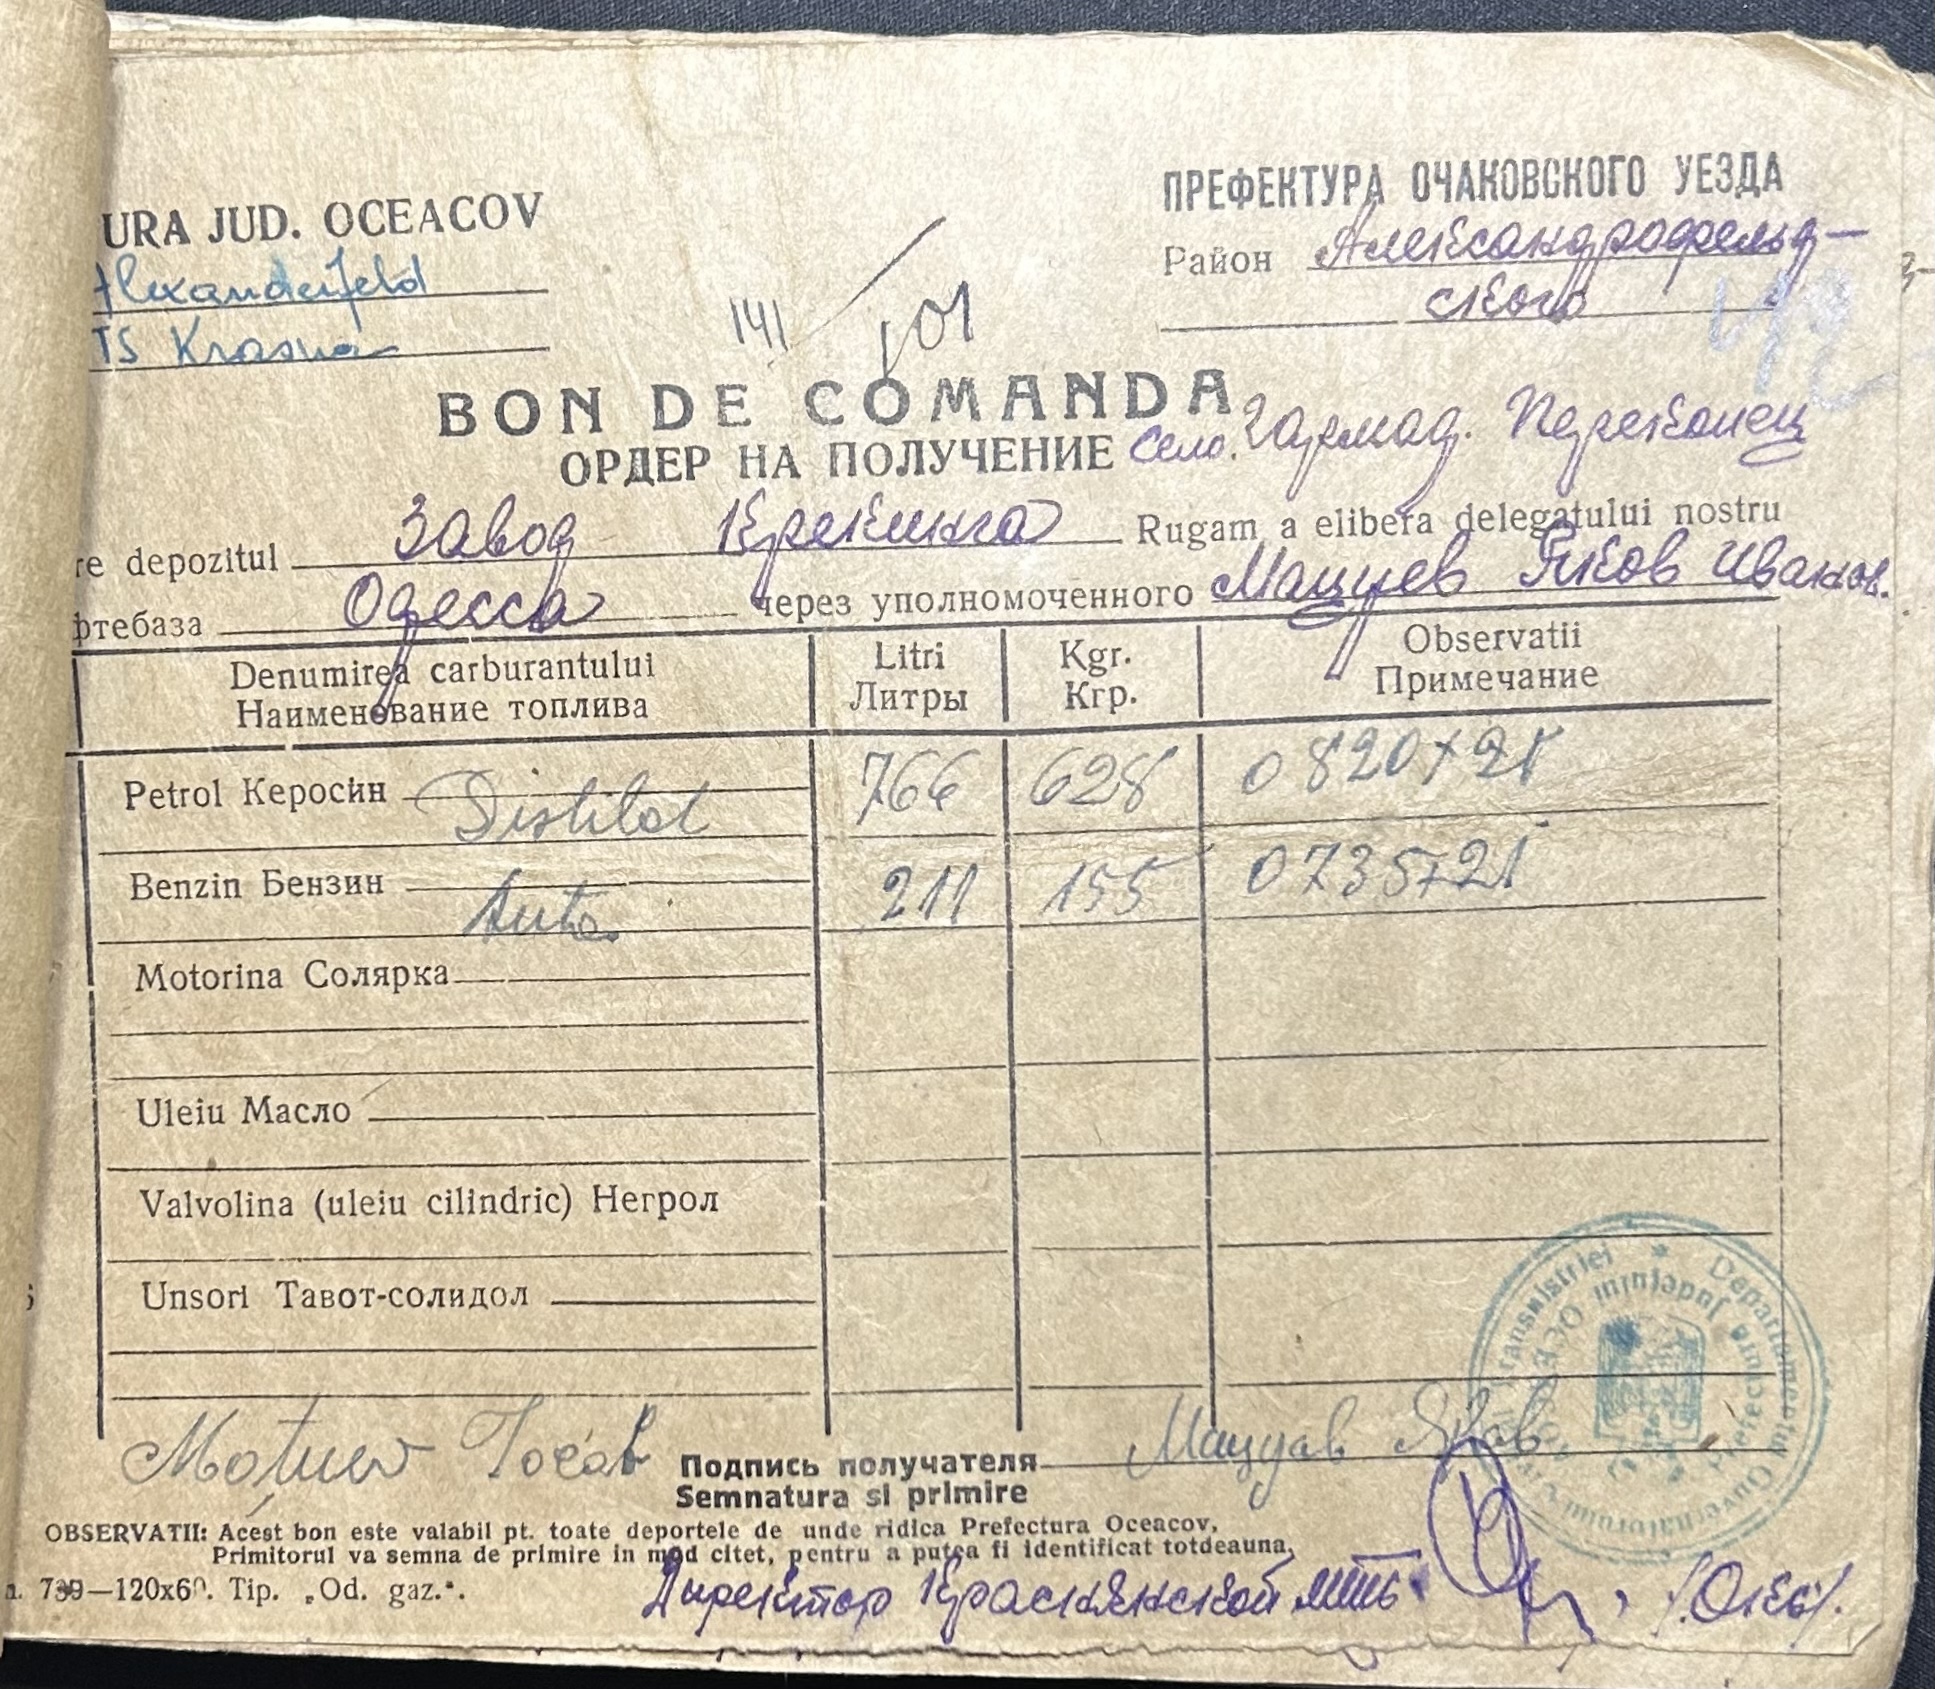 URA JUD. OCEACOV
ПРЕФЕКТУРА ОЧАКОВСКОГО УЕЗДА
Alexanderfeld
Район Александрофельд-
ского
TS Krasna
141
101
BON DE COMANDA
ОРДЕР НА ПОЛУЧЕНИЕ село.
re depozitul Завод Крекинга Rugam a elibera delegatului nostru
фтебаза Одесса через уполномоченного Мацуев Яков Иванов.
Denumirea carburantului Litri Kgr. Observatii
Наименование топлива Литры Кгр. Примечание
Petrol Керосин Distilat 766 628 0820+21
Benzin Бензин Auto 211 155 0735+21
Motorina Солярка
Uleiu Масло
Valvolina (uleiu cilindric) Негрол
Unsori Тавот-солидол
Подпись получателя Мацуев Яков
Semnatura si primire
OBSERVATII: Acest bon este valabil pt. toate deportele de unde ridica Prefectura Oceacov,
Primitorul va semna de primire in mod citet, pentru a putea fi identificat totdeauna,
739—120x60. Tip. „Od. gaz.“.
Директор Краснянской мтс
Guvernatorului Transnistriei * Departamentul
Prefectura Județului OCEACOV